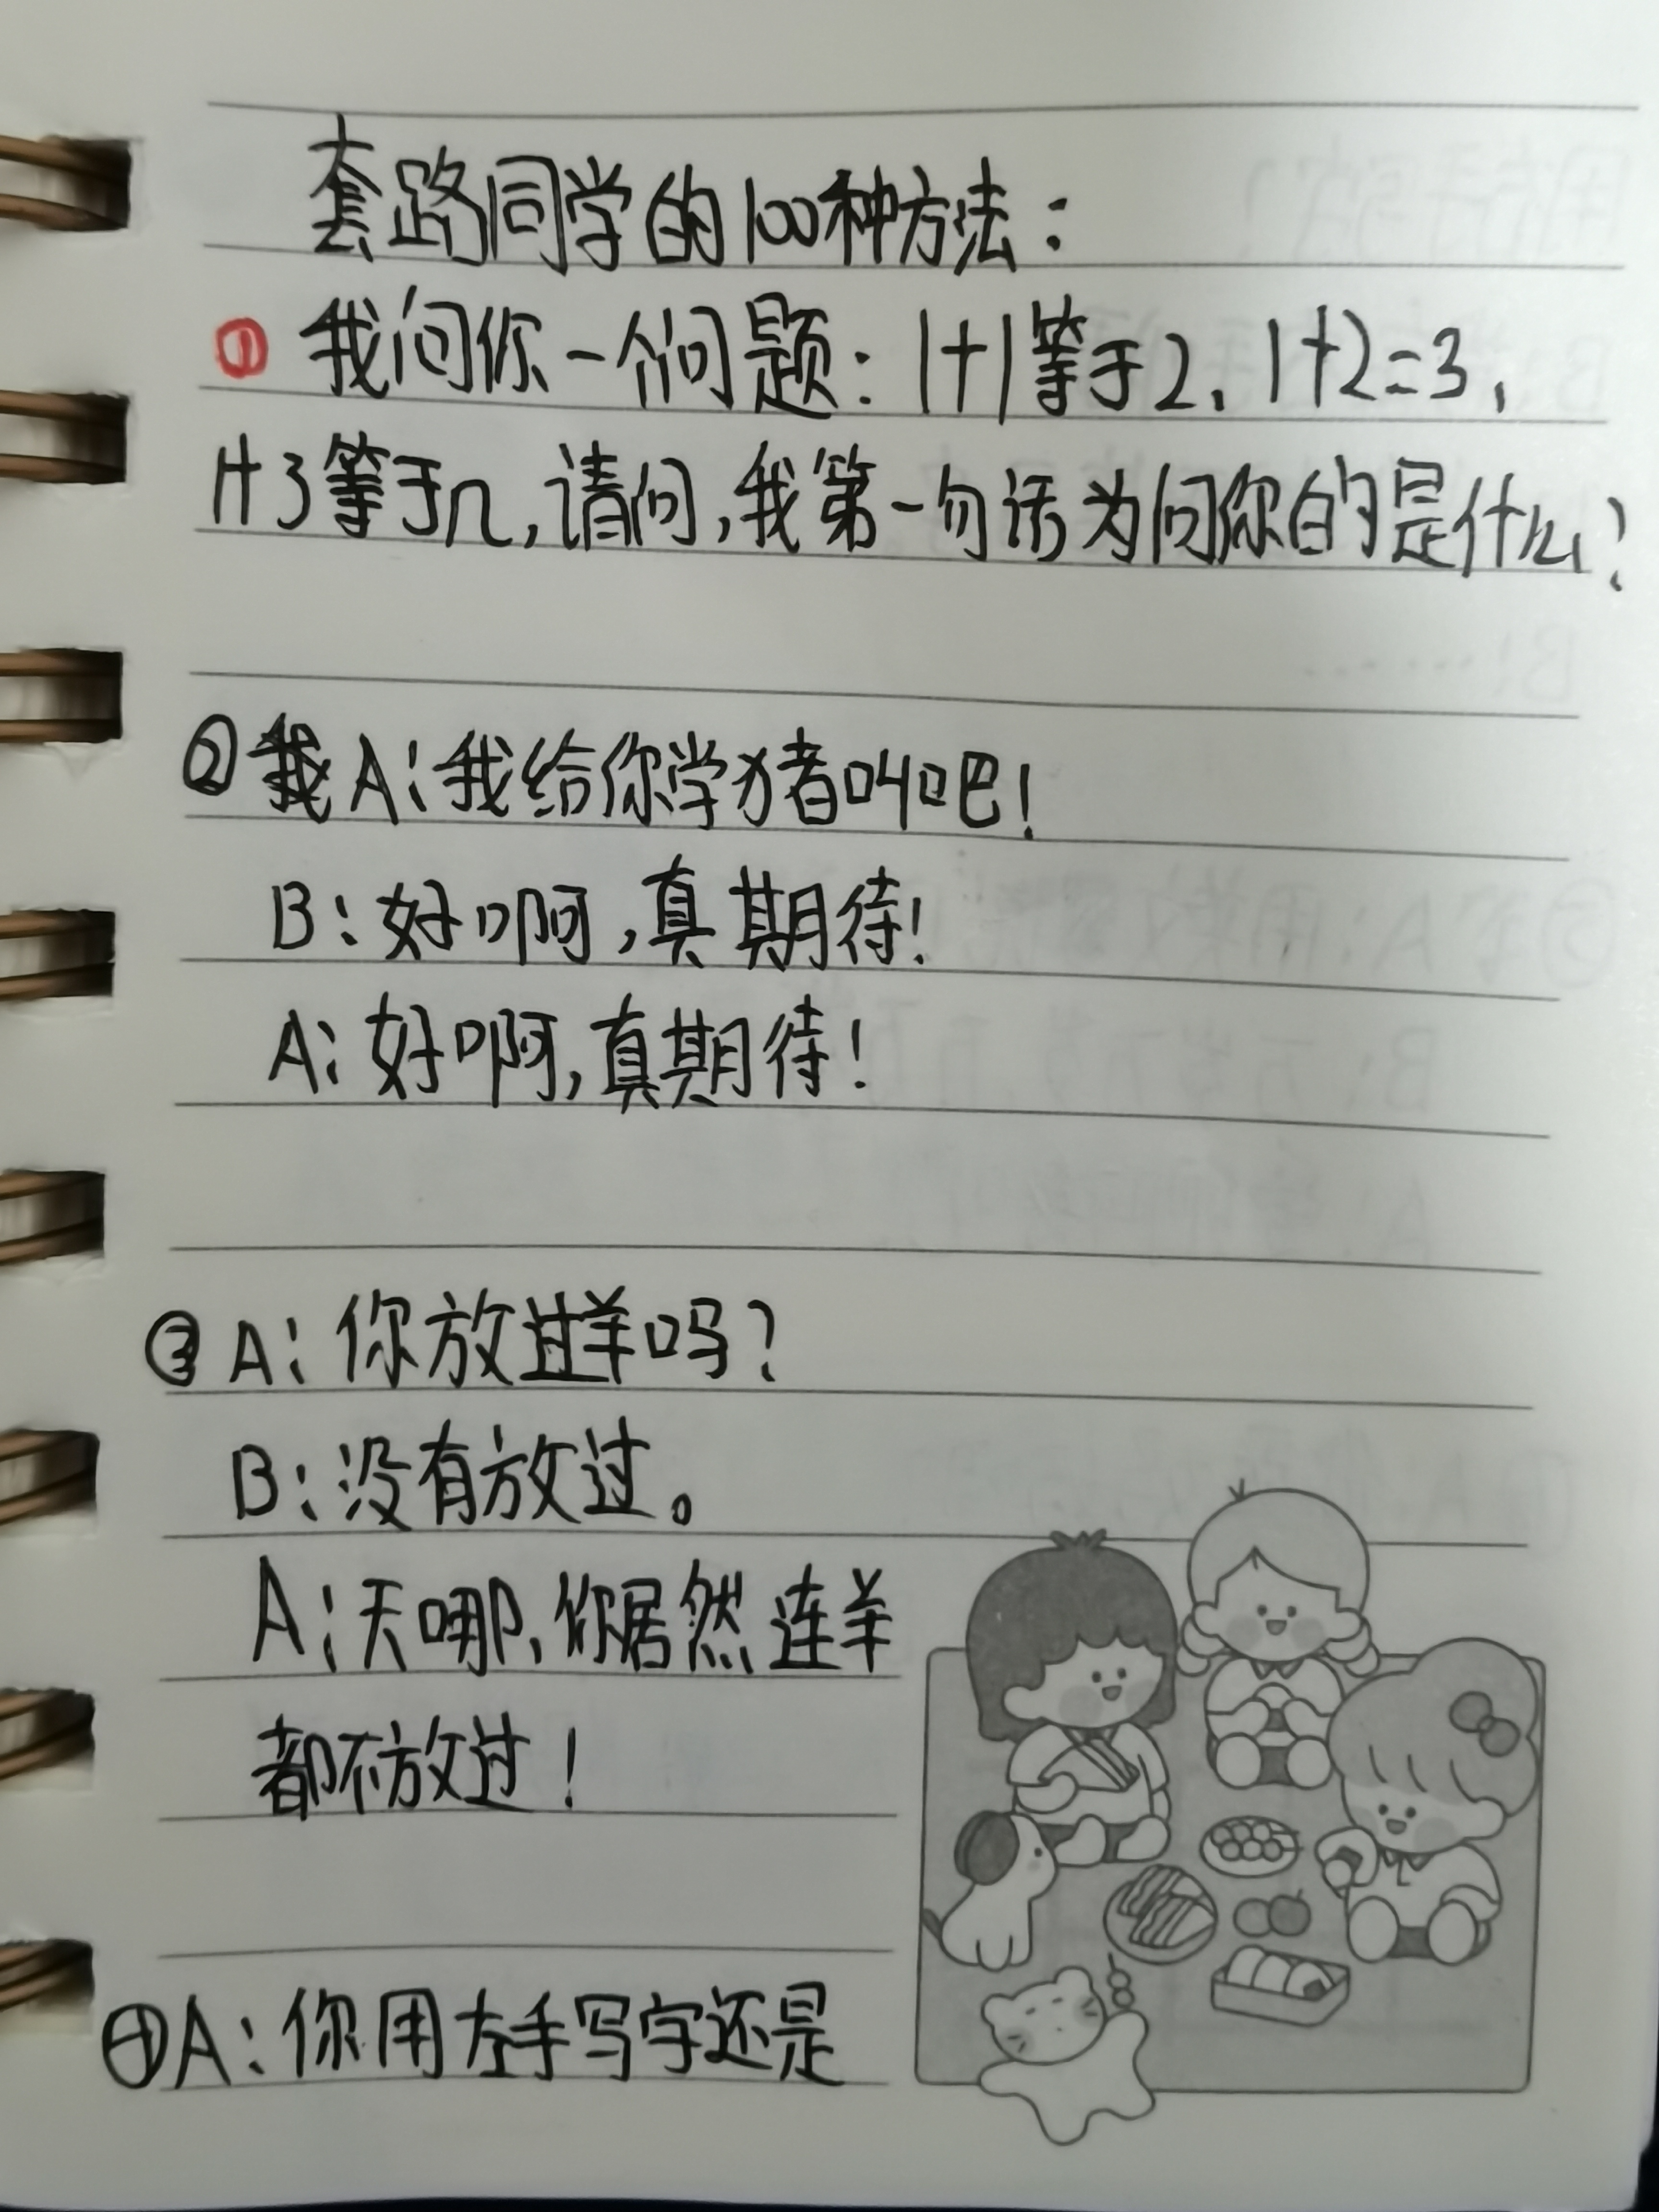 套路同学的100种方法：
① 我问你一个问题：1+1等于2、1+2=3、
1+3等于几，请问，我第一句话为问你的是什么？
② 我A：我给你学猪叫吧！
B：好啊，真期待！
A：好啊，真期待！
③ A：你放过羊吗？
B：没有放过。
A：天哪、你居然连羊
都不放过！
④A：你用左手写字还是